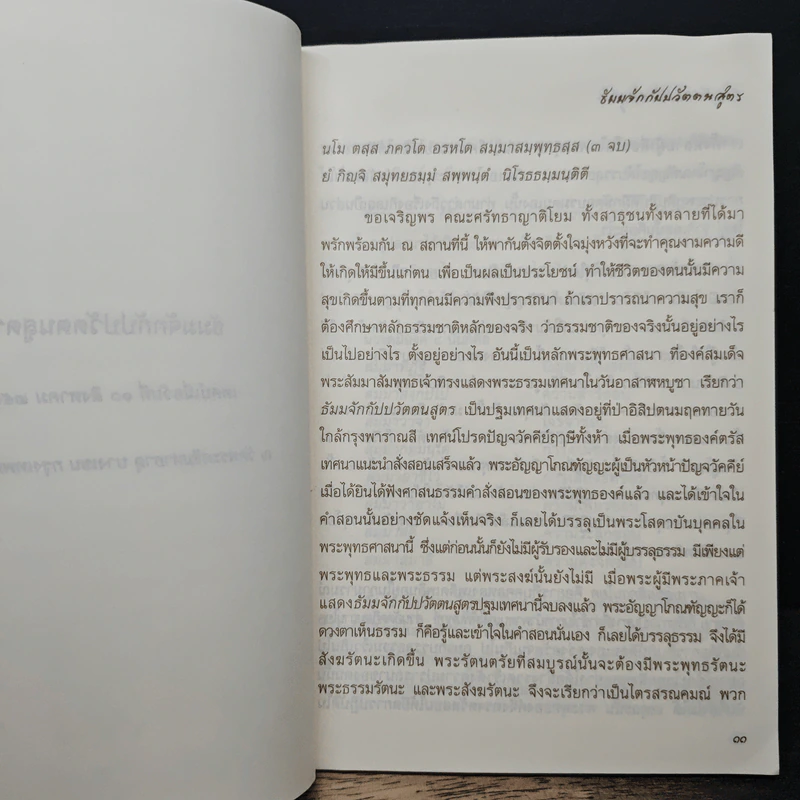 ธัมมจักกัปปวัตตนสูตร
นโม ตสฺส ภควโต อรหโต สมฺมาสมฺพุทฺธสฺส (๓ จบ)
ยํ กิญฺจิ สมุทยธมฺมํ สพฺพนฺตํ นิโรธธมฺมนฺติตี
ขอเจริญพร คณะศรัทธาญาติโยม ทั้งสาธุชนทั้งหลายที่ได้มา
พรักพร้อมกัน ณ สถานที่นี้ ให้พากันตั้งจิตตั้งใจมุ่งหวังที่จะทำคุณงามความดี
ให้เกิดให้มีขึ้นแก่ตน เพื่อเป็นผลเป็นประโยชน์ ทำให้ชีวิตของตนนั้นมีความ
สุขเกิดขึ้นตามที่ทุกคนมีความพึงปรารถนา ถ้าเราปรารถนาความสุข เราก็
ต้องศึกษาหลักธรรมชาติหลักของจริง ว่าธรรมชาติของจริงนั้นอยู่อย่างไร
เป็นไปอย่างไร ตั้งอยู่อย่างไร อันนี้เป็นหลักพระพุทธศาสนา ที่องค์สมเด็จ
พระสัมมาสัมพุทธเจ้าทรงแสดงพระธรรมเทศนาในวันอาสาฬหบูชา เรียกว่า
ธัมมจักกัปปวัตตนสูตร เป็นปฐมเทศนาแสดงอยู่ที่ป่าอิสิปตนมฤคทายวัน
ใกล้กรุงพาราณสี เทศน์โปรดปัญจวัคคีย์ฤๅษีทั้งห้า เมื่อพระพุทธองค์ตรัส
เทศนาแนะนำสั่งสอนเสร็จแล้ว พระอัญญาโกณฑัญญะผู้เป็นหัวหน้าปัญจวัคคีย์
เมื่อได้ยินได้ฟังศาสนธรรมคำสั่งสอนของพระพุทธองค์แล้ว และได้เข้าใจใน
คำสอนนั้นอย่างชัดแจ้งเห็นจริง ก็เลยได้บรรลุเป็นพระโสดาบันบุคคลใน
พระพุทธศาสนานี้ ซึ่งแต่ก่อนนั้นก็ยังไม่มีผู้รับรองและไม่มีผู้บรรลุธรรม มีเพียงแต่
พระพุทธและพระธรรม แต่พระสงฆ์นั้นยังไม่มี เมื่อพระผู้มีพระภาคเจ้า
แสดงธัมมจักกัปปวัตตนสูตรปฐมเทศนานี้จบลงแล้ว พระอัญญาโกณฑัญญะก็ได้
ดวงตาเห็นธรรม ก็คือรู้และเข้าใจในคำสอนนั่นเอง ก็เลยได้บรรลุธรรม จึงได้มี
สังฆรัตนะเกิดขึ้น พระรัตนตรัยที่สมบูรณ์นั้นจะต้องมีพระพุทธรัตนะ
พระธรรมรัตนะ และพระสังฆรัตนะ จึงจะเรียกว่าเป็นไตรสรณคมณ์ พวก
๑๑